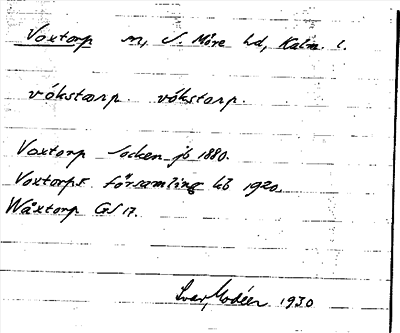 Voxtorp sn, S. Möre hd, Kalm. l.
vókstårp. vókstarp.
Voxtorp Socken jb 1880.
Voxtorps församling kb 1920.
Wåxtorp GS 17.
Ivar Modéer 1930